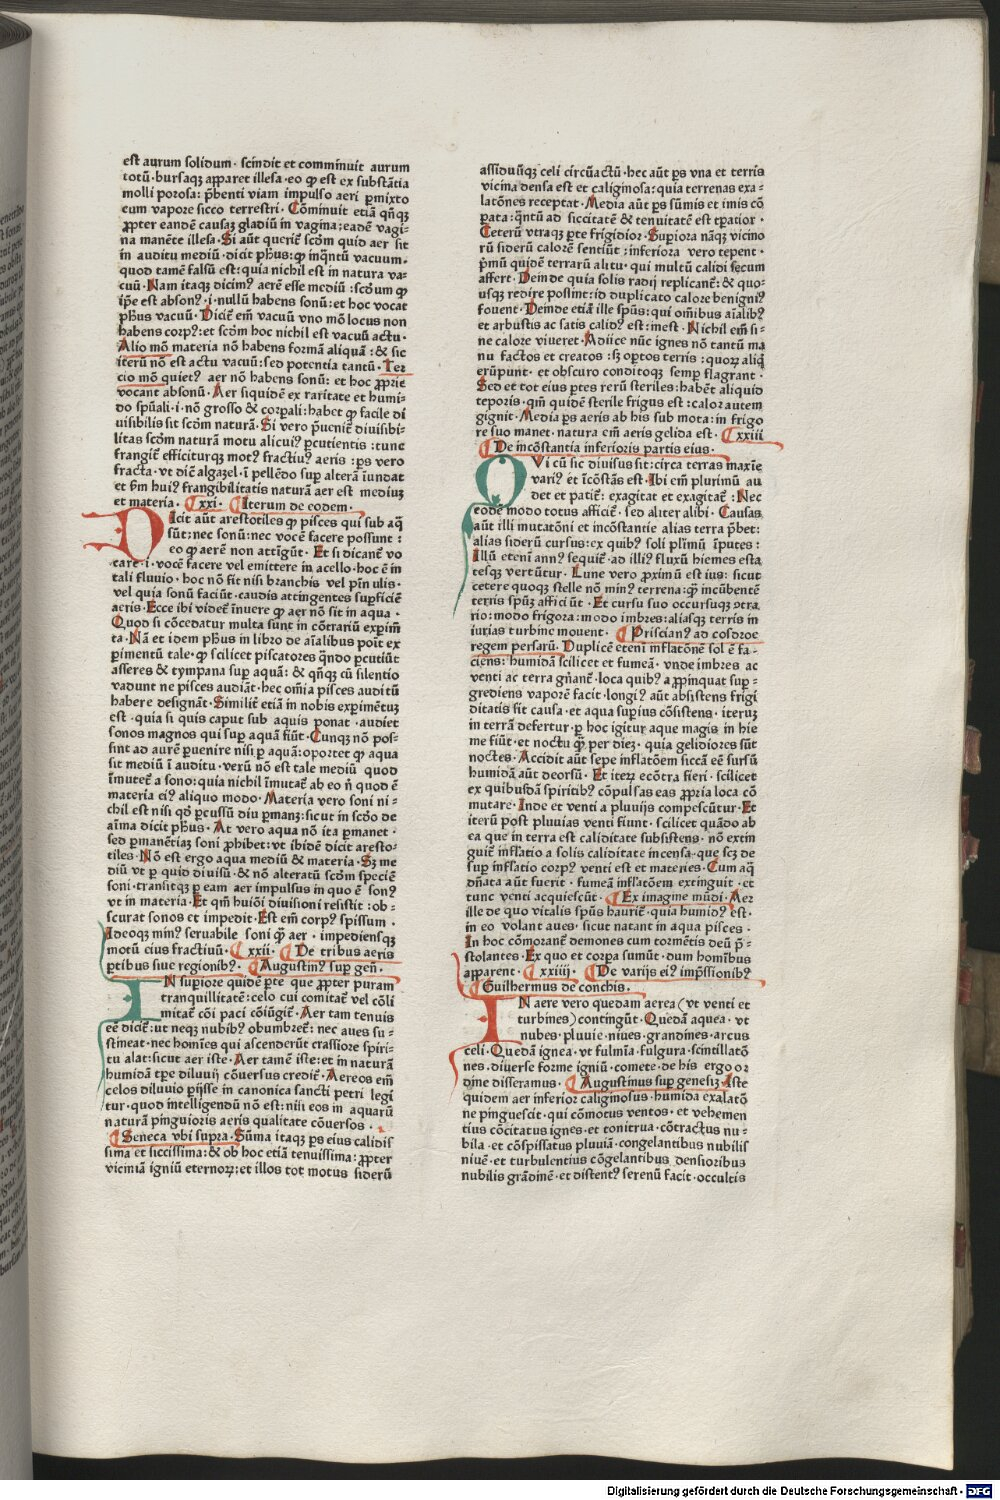 est aurum solidum · scindit et comminuit aurum
totū · bursaqꝫ apparet illesa · eo ꝙ est ex substātia
molli porosa : p̄benti viam impulso aeri ꝑmixto
cum vapore sicco terrestri · Cōminuit etiā qn̄qꝫ
ꝓpter eandē causaꝫ gladiū in vagina : eadē vagi-
na manēte illesa · Si aūt queriť scd̄m quid aer sit
in auditu mediū · dicit ph̄us : ꝙ inq̄ntū vacuum ·
quod tamē falsū est : quia nichil est in natura va-
cuū · Nam itaqꝫ dicimꝰ aerē esse mediū : scd̄um ꝙ
ip̄e est absonꝰ · i · nullū habens sonū : et hoc vocat
ph̄us vacuū · Diciť em̄ vacuū vno mō locus non
habens corpꝰ : et scd̄m hoc nichil est vacuū actu ·
Alio mō materia nō habens formā aliquā : & sic
iterū nō est actu vacuū : sed potentia tantū · Ter
cio mō quietꝰ aer nō habens sonū : et hoc ꝓprie
vocant absonū · Aer siquidē ex raritate et humi-
do spūali · i · nō grosso & corꝑali : habet ꝙ facile di
uisibilis sit scd̄m naturā · Si vero p̄ueniť diuisibi-
litas scd̄m naturā motu alicuiꝰ ꝑcutientis : tunc
frangiť efficiturqꝫ motꝰ fractiuꝰ aeris : ꝑs vero
fracta · vt diciť algaꝫel · ī pellēdo suꝑ alterā īundat
et ẜm huiꝰ frangibilitatis naturā aer est mediuꝫ
et materia · xxi · Iterum de eodem ·
DIcit aūt arestotiles ꝙ pisces qui sub aq̄
sūt : nec sonū : nec vocē facere possunt :
eo ꝙ aerē non attīgūt · Et si dicanť vo
care · i · vocē facere vel emittere in acello · hoc ē in
tali fluuio · hoc nō fit nisi branchis vel pīn ulis ·
vel quia sonū faciūt · caudis attingentes suꝑficiē
aeris · Ecce ibi videť īnuere ꝙ aer nō sit in aqua ·
Quod si cōcedatur multa sunt in cōtrariū expim̄
ta · Nā et idem ph̄us in libro de aīalibus poīt ex
ꝑimentū tale · ꝙ scilicet piscatores q̄ndo ꝑcutiūt
asseres & tympana suꝑ aquā : & qn̄qꝫ cū silentio
vadunt ne pisces audiāt · hec om̄ia pisces auditū
habere designāt · Similiť etiā in nobis exꝑimētuꝫ
est · quia si quis caput sub aquis ponat · audiet
sonos magnos qui suꝑ aquā fiūt · Cunqꝫ nō pos-
sint ad aurē ꝑuenire nisi ꝑ aquā : oportet ꝙ aqua
sit mediū ī auditu · verū nō est tale mediū quod
īmuteť a sono : quia nichil īmutať ab eo n̄ quod ē
materia eiꝰ aliquo modo · Materia vero soni ni-
chil est nisi qđ ꝑcussū diu ꝑmanꝫ : sicut in scd̄o de
aīma dicit ph̄us · At vero aqua nō ita ꝑmanet ·
sed ꝑmanētiaꝫ soni ꝓhibet : vt ibidē dicit aresto-
tiles · Nō est ergo aqua mediū & materia · Sꝫ me
diū vt ꝑ quid diuisū · & nō alteratū scd̄m speciē
soni · transitqꝫ ꝑ eam aer impulsus in quo ē sonꝰ
vt in materia · Et qm̄ huiōi diuisioni resistit : ob-
scurat sonos et impedit · Est em̄ corpꝰ spissum ·
Ideoqꝫ minꝰ seruabile soni ꝙ̄ aer · impediensqꝫ
motū eius fractiuū · xxii · De tribus aeris
ꝑtibus siue regionibꝰ · Augustinꝰ suꝑ gen̄ ·
IN supiore quidē ꝑte que ꝓpter puram
tranquillitatē : celo cui comitať vel cōli
mitať cōi paci cōiūgiť · Aer tam tenuis
eē diciť : vt neqꝫ nubibꝰ obumbreť : nec aues su-
stineat · nec homīes qui ascenderūt crassiore spiri-
tu alat : sicut aer iste · Aer tamē iste : et in naturā
humidā tꝑe diluuij cōuersus crediť · Aereos em̄
celos diluuio ꝑijsse in canonica sancti petri legi
tur · quod intelligendū nō est : nisi eos in aquarū
naturā pinguioris aeris qualitate cōuersos ·
Seneca vbi supra · Sūma itaqꝫ ꝑs eius calidis
sima et siccissima : & ob hoc etiā tenuissima : ꝓpter
viciniā igniū eternoꝝ : et illos tot motus siderū
assiduūqꝫ celi circūactū · hec aūt ꝑs vna et terris
vicina densa est et caliginosa : quia terrenas exa-
latōnes receptat · Media aūt ꝑs sūmis et imis cō
ꝑata : q̄ntū ad siccitatē & tenuitatē est tꝑatior ·
Ceterū vtraqꝫ ꝑte frigidior · Supiora nāqꝫ vicino
rū siderū calorē sentiūt : inferiora vero tepent ·
p̄mū quidē terrarū alitu · qui multū calidi secum
affert · Deinde quia solis radij replicanť : & quo-
usqꝫ redire possint : id duplicato calore benigniꝰ
fouent · Deinde etiā ille spūs : qui om̄ibus aīalibꝰ
et arbustis ac satis calidꝰ est : inest · Nichil em̄ si-
ne calore viueret · Adiice nūc ignes nō tantū ma
nu factos et creatos : sꝫ oꝑtos terris : quoꝝ aliq̄
erūpunt · et obscuro conditoqꝫ semꝑ flagrant ·
Sed et tot eius ꝑtes rerū steriles : habēt aliquid
teporis · qm̄ quidē sterile frigus est : calor autem
gignit · Media ꝑs aeris ab his sub mota : in frigo
re suo manet · natura em̄ aeris gelida est · xxiii
De incōstantia inferioris partis eius ·
QVi cū sic diuisus sit : circa terras maxīe
variꝰ et īcōstās est · Ibi em̄ plurimū au
det et patiť : exagitat et exagitať : Nec
eodē modo totus afficiť · sed aliter alibi · Causas
aūt illi mutatōni et incōstantie alias terra p̄bet :
alias siderū cursus : ex quibꝰ soli plīmū īputes :
Illū etenī annꝰ sequiť · ad illiꝰ fluxū hiemes esta
tesqꝫ vertūtur · Lune vero ꝓximū est ius : sicut
cetere quoqꝫ stelle nō minꝰ terrena : ꝙ̄ incūbentē
terris spūꝫ affici ūt · Et cursu suo occursuqꝫ ꝯtra
rio : modo frigora : modo imbres : aliasqꝫ terris in
iurias turbine mouent · Priscianꝰ ad cosdroe
regem persarū · Duplicē etenī inflatōnē sol ē fa-
ciens : humidā scilicet et fumeā · vnde imbres ac
venti ac terra gn̄anť · loca quibꝰ a ꝓpinquat suꝑ-
grediens vaporē facit · longiꝰ aūt absistens frigi
ditatis fit causa · et aqua supius cōsistens · iteruꝫ
in terrā defertur · ꝑ hoc igitur aque magis in hie
me fiūt · et noctu ꝙ̄ per dieꝫ · quia gelidiores sūt
noctes · Accidit aūt sepe inflatōem siccā eē sursū
humidā aūt deorsū · Et iteꝝ ecōtra fieri · scilicet
ex quibusdā spiritibꝰ cōpulsas eas ꝓpria loca cō
mutare · Inde et venti a pluuijs compescūtur · Et
iterū post pluuias venti fiunt · scilicet quādo ab
ea que in terra est caliditate subsistens · nō extin
guiť inflatio a solis caliditate incensa · que scꝫ de
suꝑ inflatio corpꝰ venti est et materies · Cum aq̄
dn̄ata aūt fuerit · fumeā inflatōem extinguit · et
tunc venti acquiescūt · Ex imagine mūdi · Aer
ille de quo vitalis spūs hauriť · quia humidꝰ est ·
in eo volant aues · sicut natant in aqua pisces ·
In hoc cōmoranť demones cum tormētis deū p̄-
stolantes · Ex quo et corpa sumūt · dum homībus
apparent · xxiiii · De varijs eiꝰ imp̄ssionibꝰ
Guilhermus de conchis ·
IN aere vero quedam aerea ( vt venti et
turbines ) contingūt · Quedā aquea · vt
nubes · pluuie · niues · grandines · arcus
celi · Quedā ignea · vt fulmīa · fulgura · scintillatō
nes · diuerse forme igniū · comete · de his ergo or
dine disseramus · Augustinus suꝑ genesiꝫ · Iste
quidem aer inferior caliginosus · humida exalatō
ne pinguescit · qui cōmotus ventos · et vehemen
tius cōcitatus ignes · et tonitrua · cōtractus nu-
bila · et cōspissatus pluuiā · congelantibus nubilis
niuē · et turbulentius cōgelantibus densioribus
nubilis grādinē · et distentꝰ serenū facit · occultis
Digitalisierung gefördert durch die Deutsche Forschungsgemeinschaft · DFG